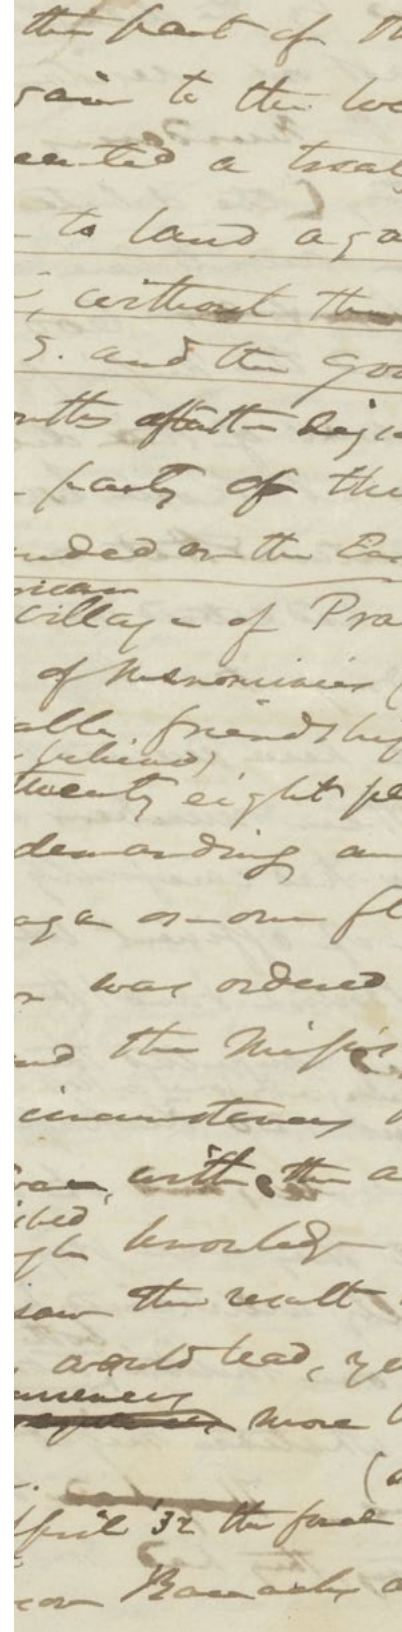 the part of th
gain to the we
sented a treat
to land aga
, without the
S. and the goo
onths after the
party of the
nded on the Ea
rican
village of Pra
of Menominies (
able friendship
(behind)
twenty eight pe
demanding an
age on our fl
was ordered
and the Missi's
circumstances
with the a
knowledge
saw the result
would lead, ye
urrences
more
(a
April '32 the force
son Barracks a